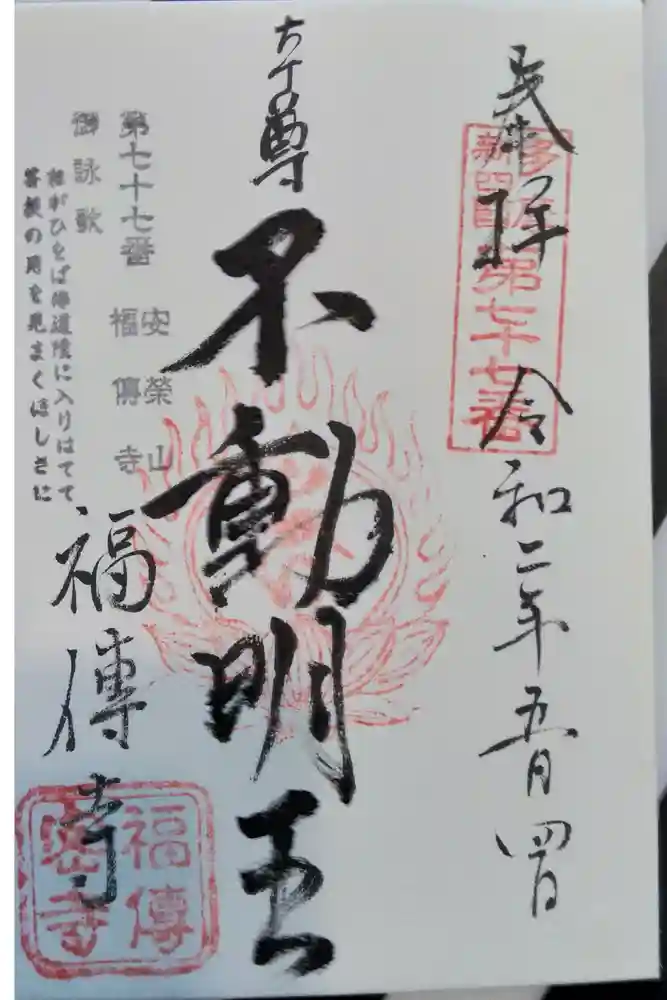 奉拝 令和二年五月四日
新四国第七十七番
本尊
不動明王
第七十七番 安榮山 福傳寺
御詠歌
のりひとば佛道陰に入りはてて
菩提の月を見まくほしさに
福傳寺
福傳
密寺